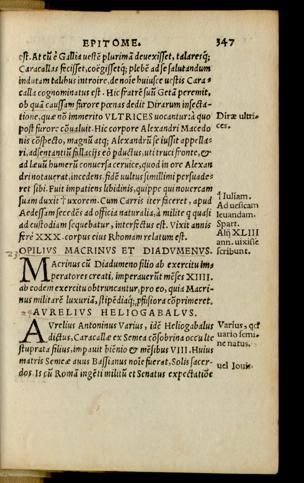 EPITOME. 347
est. At cũ è Gallia uestẽ plurimã deuexisset, talaresq;
Caracallas fecisset, coëgissetq; plebẽ ad se salutandum
indutam talibus introire, de noĩe huiusce uestis Cara-
calla cognominatus est. Hic fratrẽ suũ Getã peremit,
ob quã caussam furore pœnas dedit Dirarum insecta-
tione, quæ nõ immerito VLTRICES uocantur: à quo
post furore cõualuit. Hic corpore Alexandri Macedo
nis cõspecto, magnũ atq; Alexandrũ se iussit appella-
ri, adsentantiũ fallacijs eò pductus, uti truci fronte, &
ad læuũ humerũ conuersa ceruice, quod in ore Alexan
dri notauerat, incedens, fidẽ uultus simillimi persuade-
ret sibi. Fuit impatiens libidinis, quippe qui nouercam
suam duxit † uxorem. Cum Carris iter faceret, apud
Aedessam secedẽs ad officia naturalia, à milite q quasi
ad custodiam sequebatur, interfectus est. Vixit annis
ferè XXX. corpus eius Rhomam relatum est.
OPILIVS MACRINVS ET DIADVMENVS.
Macrinus cũ Diadumeno filio ab exercitu im-
peratores creati, imperauerũt mẽses XIIII.
ab eodem exercitu obtruncantur, pro eo, quia Macri-
nus militarẽ luxuriã, stipẽdiaq; pfusiora cõprimeret.
AVRELIVS HELIOGABALVS.
Avrelius Antoninus Varius, idẽ Heliogabalus
dictus, Caracallæ ex Semea cõsobrina occulte
stuprata filius, impauit biẽnio & mẽsibus VIII. Huius
matris Semeæ auus Bassianus noĩe fuerat, Solis sacer-
dos. Is cũ Romã ingẽti militũ et Senatus expectatiõe
Diræ ultri-
ces.
† Iuliam.
Ad uesicam
leuandam.
Spart.
Alij XLIII
ann. uixisse
scribunt.
Varius, qď
uario semi-
ne natus.
uel Iouis